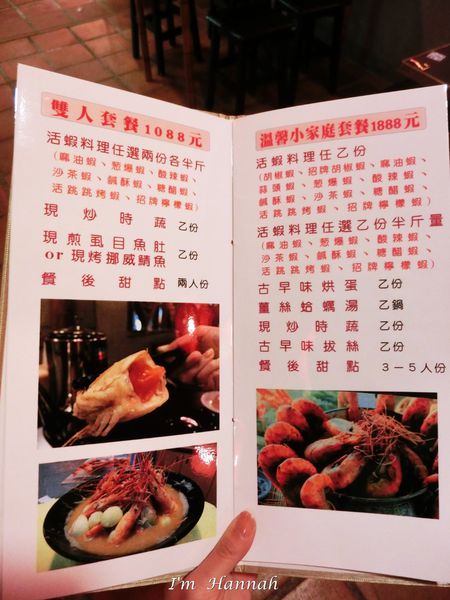 雙人套餐1088元
活蝦料理任選兩份各半斤
(麻油蝦、葱爆蝦、酸辣蝦、
沙茶蝦、鹹酥蝦、糖醋蝦、
活跳跳烤蝦、招牌檸檬蝦)
現炒時蔬 乙份
現煎虱目魚肚
or 現烤挪威鯖魚 乙份
餐後甜點 兩人份
溫馨小家庭套餐1888元
活蝦料理任選乙份
(胡椒蝦、招牌胡椒蝦、麻油蝦、
蒜頭蝦、葱爆蝦、酸辣蝦、
沙茶蝦、鹹酥蝦、糖醋蝦、
活跳跳烤蝦、招牌檸檬蝦)
活蝦料理任選乙份半斤量
(麻油蝦、葱爆蝦、酸辣蝦、
沙茶蝦、鹹酥蝦、糖醋蝦、
活跳跳烤蝦、招牌檸檬蝦)
古早味烘蛋 乙份
薑絲蛤蠣湯 乙鍋
現炒時蔬 乙份
古早味拔絲 乙份
餐後甜點 3－5人份
I'm Hannah